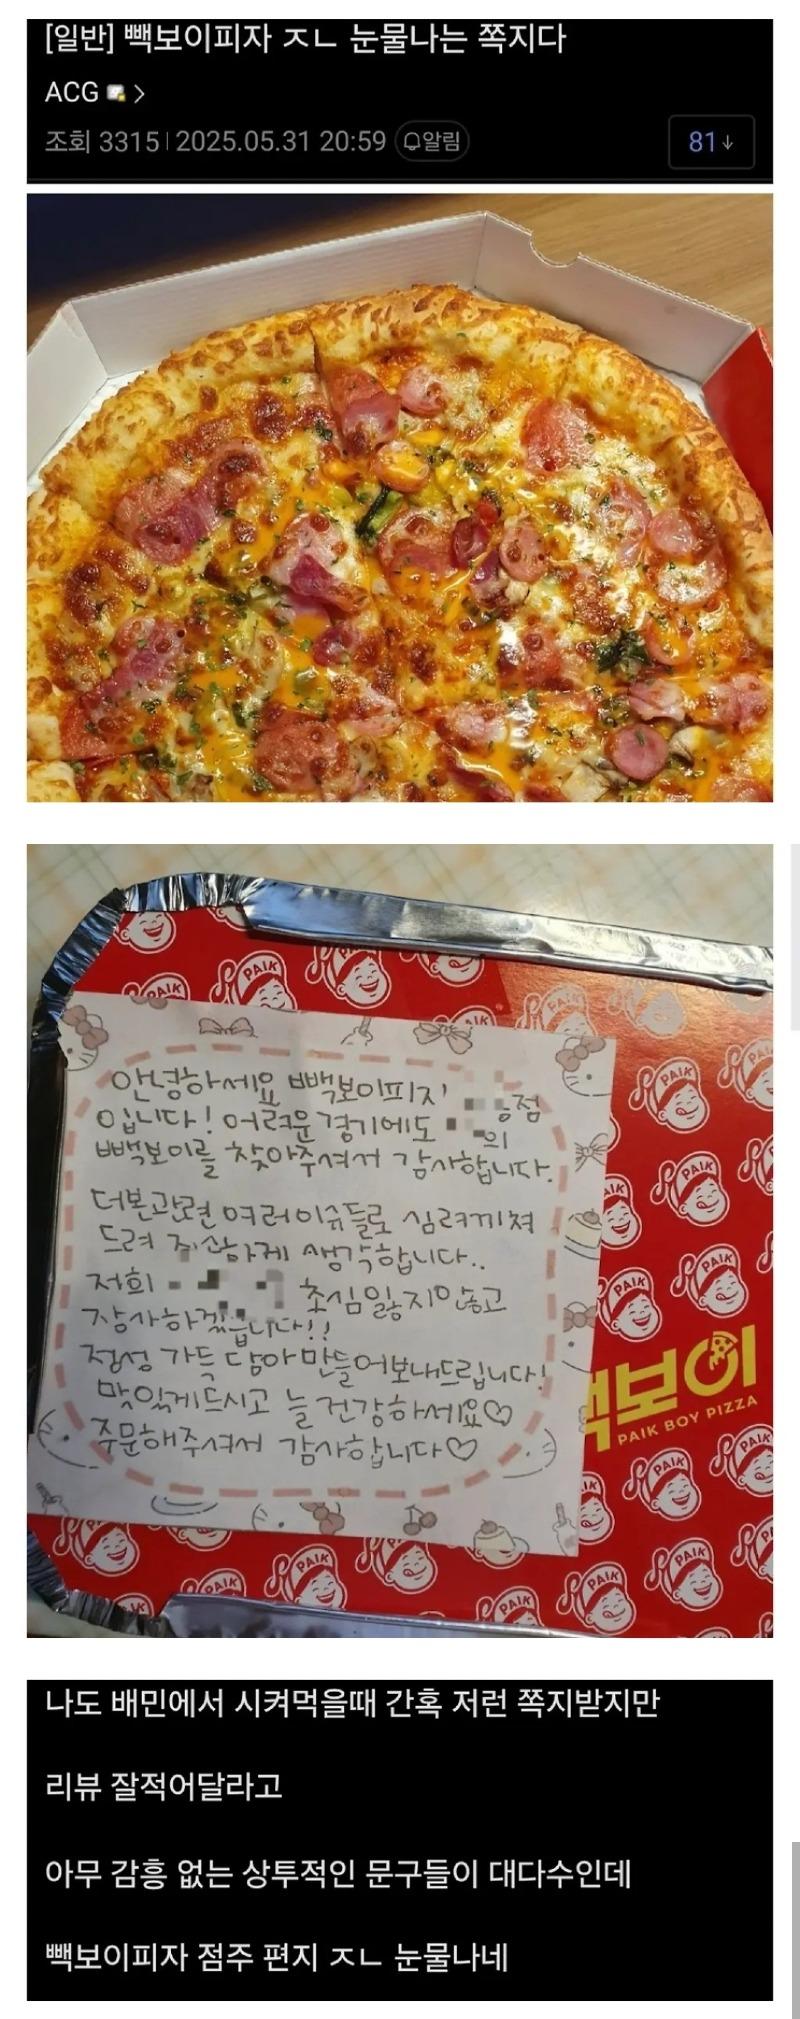 [일반] 빽보이피자 ㅈㄴ 눈물나는 쪽지다
ACG
조회 3315 2025.05.31 20:59 알림
81↓
안녕하세요 빽보이피자 점
입니다! 어려운 경기에도 의
빽보이를 찾아주셔서 감사합니다.
더본관련 여러이슈들로 심려끼쳐
드려 죄송하게 생각합니다..
저희 초심잃지않고
장사하겠습니다!!
정성 가득 담아만들어보내드립니다!
맛있게드시고 늘 건강하세요♡
주문해주셔서 감사합니다♡
PAIK
빽보이
PAIK BOY PIZZA
나도 배민에서 시켜먹을때 간혹 저런 쪽지받지만
리뷰 잘적어달라고
아무 감흥 없는 상투적인 문구들이 대다수인데
빽보이피자 점주 편지 ㅈㄴ 눈물나네